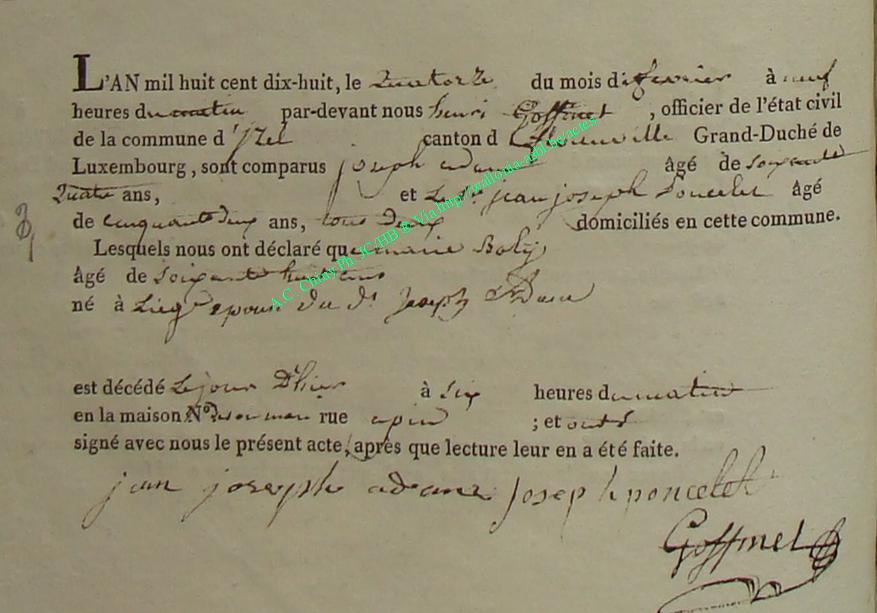 L'AN mil huit cent dix-huit, le Quatorze du mois de fevrier à neuf
heures du matin par-devant nous henri Goffinet, officier de l'état civil
de la commune d'Izel canton d Grand-Duché de
Luxembourg, sont comparus joseph adam âgé de soixante
Quatre ans, et Le Sr jean joseph poncelet âgé
de cinquante deux ans, tous deux domiciliés en cette commune.
Lesquels nous ont déclaré que marie
âgé de soixante huit ans
né à Liege epouse du dt Joseph Adam
est décédé Le jour D'hier à six heures du matin
en la maison No de son mari rue ; et ont
signé avec nous le présent acte, après que lecture leur en a été faite.
jean joseph adam joseph poncelet
Goffinet
3
A.C. Chiny Ph JC/HB ® Via http://wallonia-asbl.be/actes